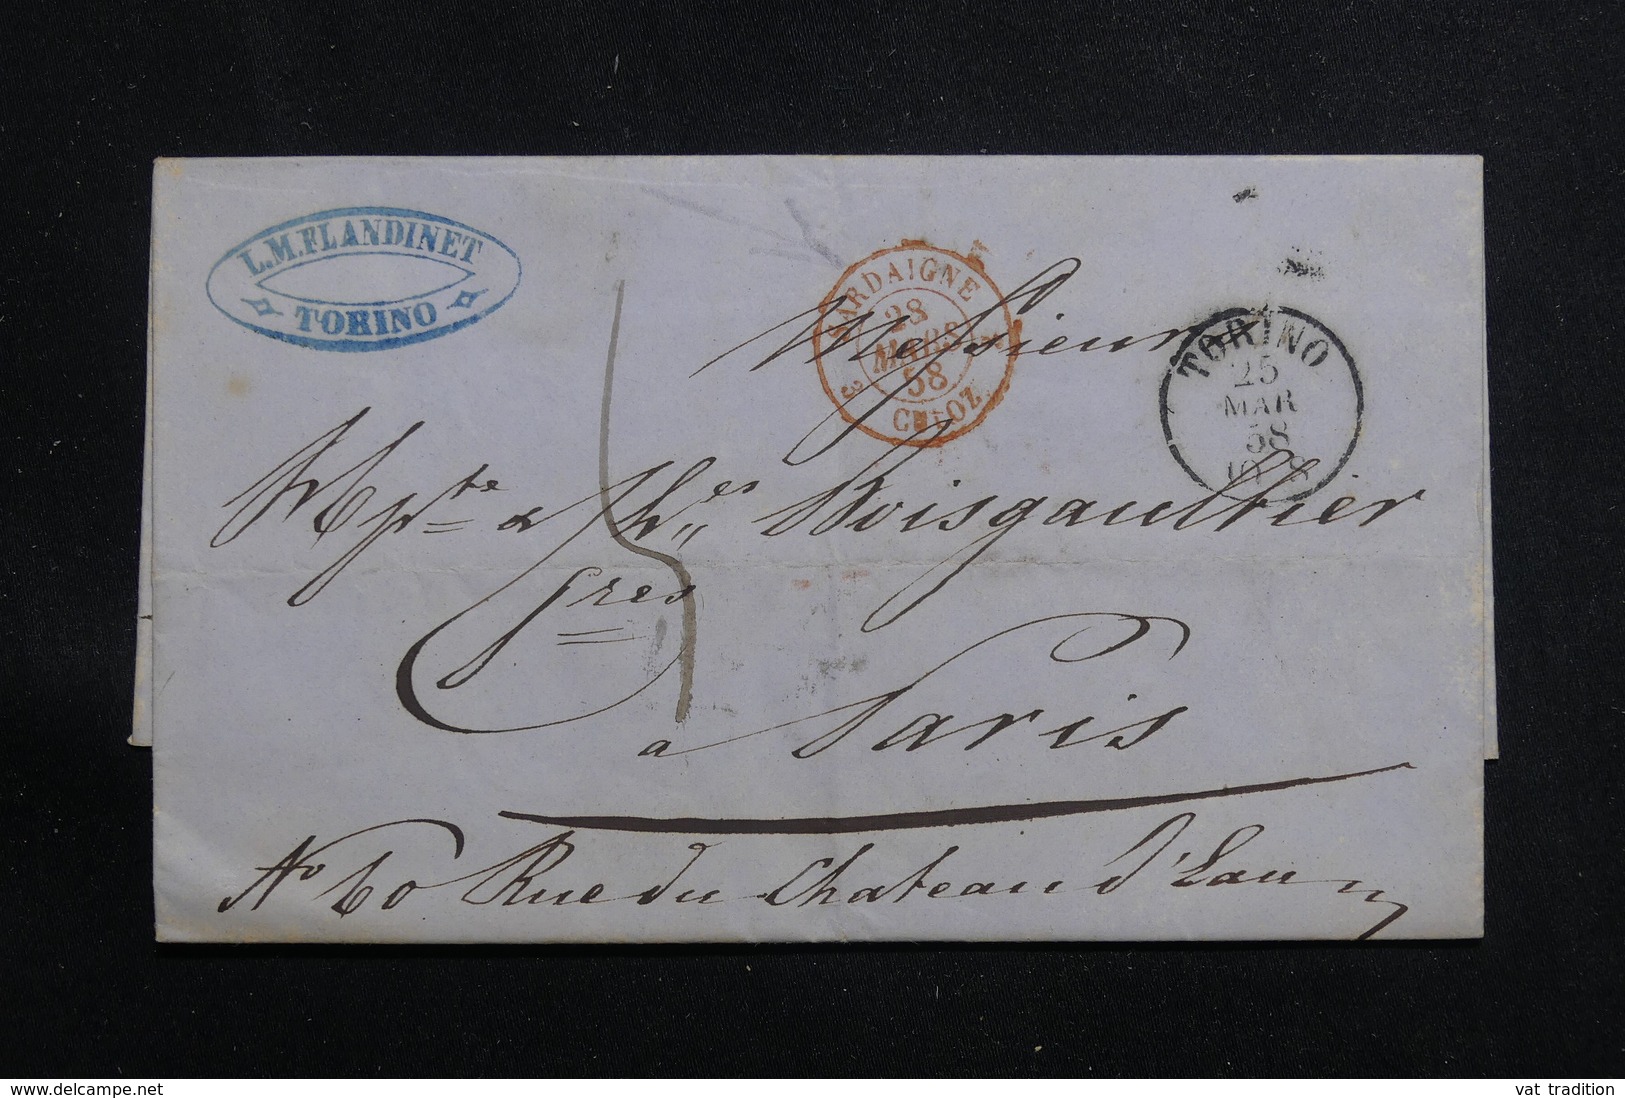 L.M.FLANDINET
TORINO
SARDAIGNE
28
MARS
58
3 CULOZ 3
TORINO
25
MAR
58
Messieurs
Hpte & Ches Boisgaulthier
frères
a Paris
No 60 Rue du Chateau d'Eau
delcampe.net
vat tradition